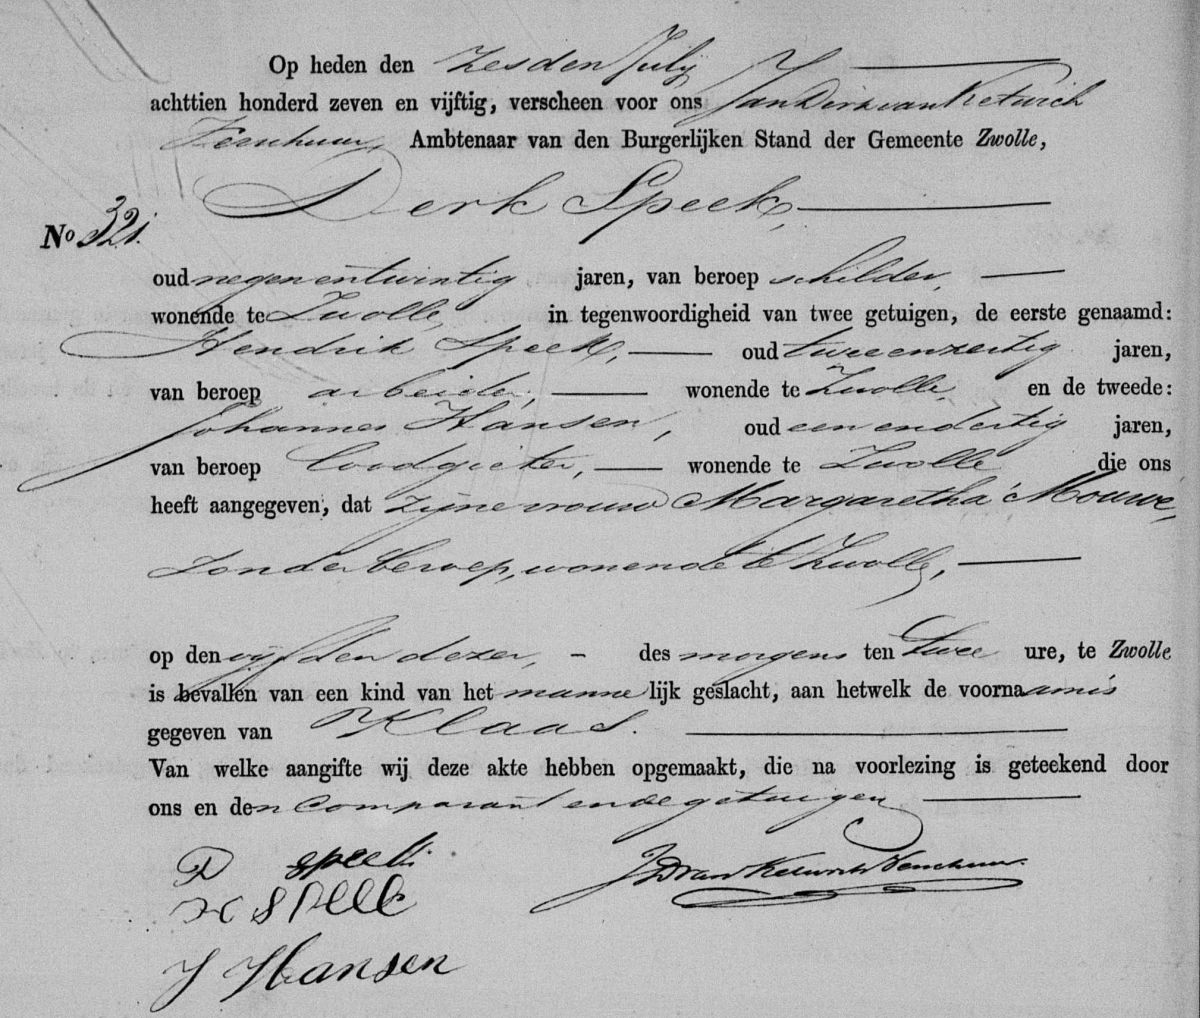 Op heden den zesden July
achttien honderd zeven en vijftig, verscheen voor ons Jan Derk van Ketwich
Verschuur, Ambtenaar van den Burgerlijken Stand der Gemeente Zwolle,
Derk Speek,
No 321.
oud negenentwintig jaren, van beroep schilder,
wonende te Zwolle, in tegenwoordigheid van twee getuigen, de eerste genaamd:
Hendrik Speek, oud tweeenzestig jaren,
van beroep arbeider, wonende te Zwolle en de tweede:
Johannes Hansen, oud eenendertig jaren,
van beroep loodgieter, wonende te Zwolle die ons
heeft aangegeven, dat zijne vrouw Margaretha Mouwe,
zonder beroep, wonende te Zwolle,
op den vijfden dezer, des morgens ten twee ure, te Zwolle
is bevallen van een kind van het mannelijk geslacht, aan hetwelk de voornaam is
gegeven van Klaas.
Van welke aangifte wij deze akte hebben opgemaakt, die na voorlezing is geteekend door
ons en den Comparant en de getuigen
D Speek
H Speek
J Hansen